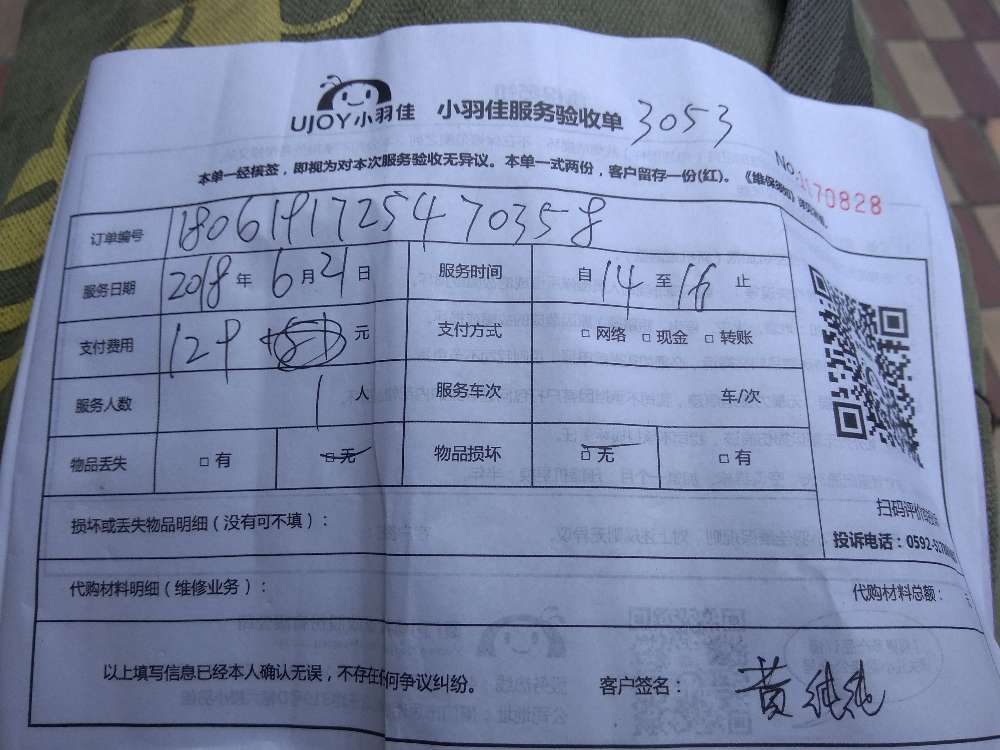 UJOY小羽佳 小羽佳服务验收单 3053
本单一经核签，即视为对本次服务验收无异议。本单一式两份，客户留存一份(红)。《维保须知》
No. 1170828
订单编号 1806191725470358
服务日期 2018年6月21日 服务时间 自14至16止
支付费用 129 元 支付方式 □网络 □现金 □转账
服务人数 1人 服务车次 车/次
物品丢失 □有 □无 物品损坏 □无 □有
扫码评价
损坏或丢失物品明细（没有可不填）：
投诉电话：0592-
代购材料明细（维修业务）： 代购材料总额：
以上填写信息已经本人确认无误，不存在任何争议纠纷。 客户签名： 黄纯纯